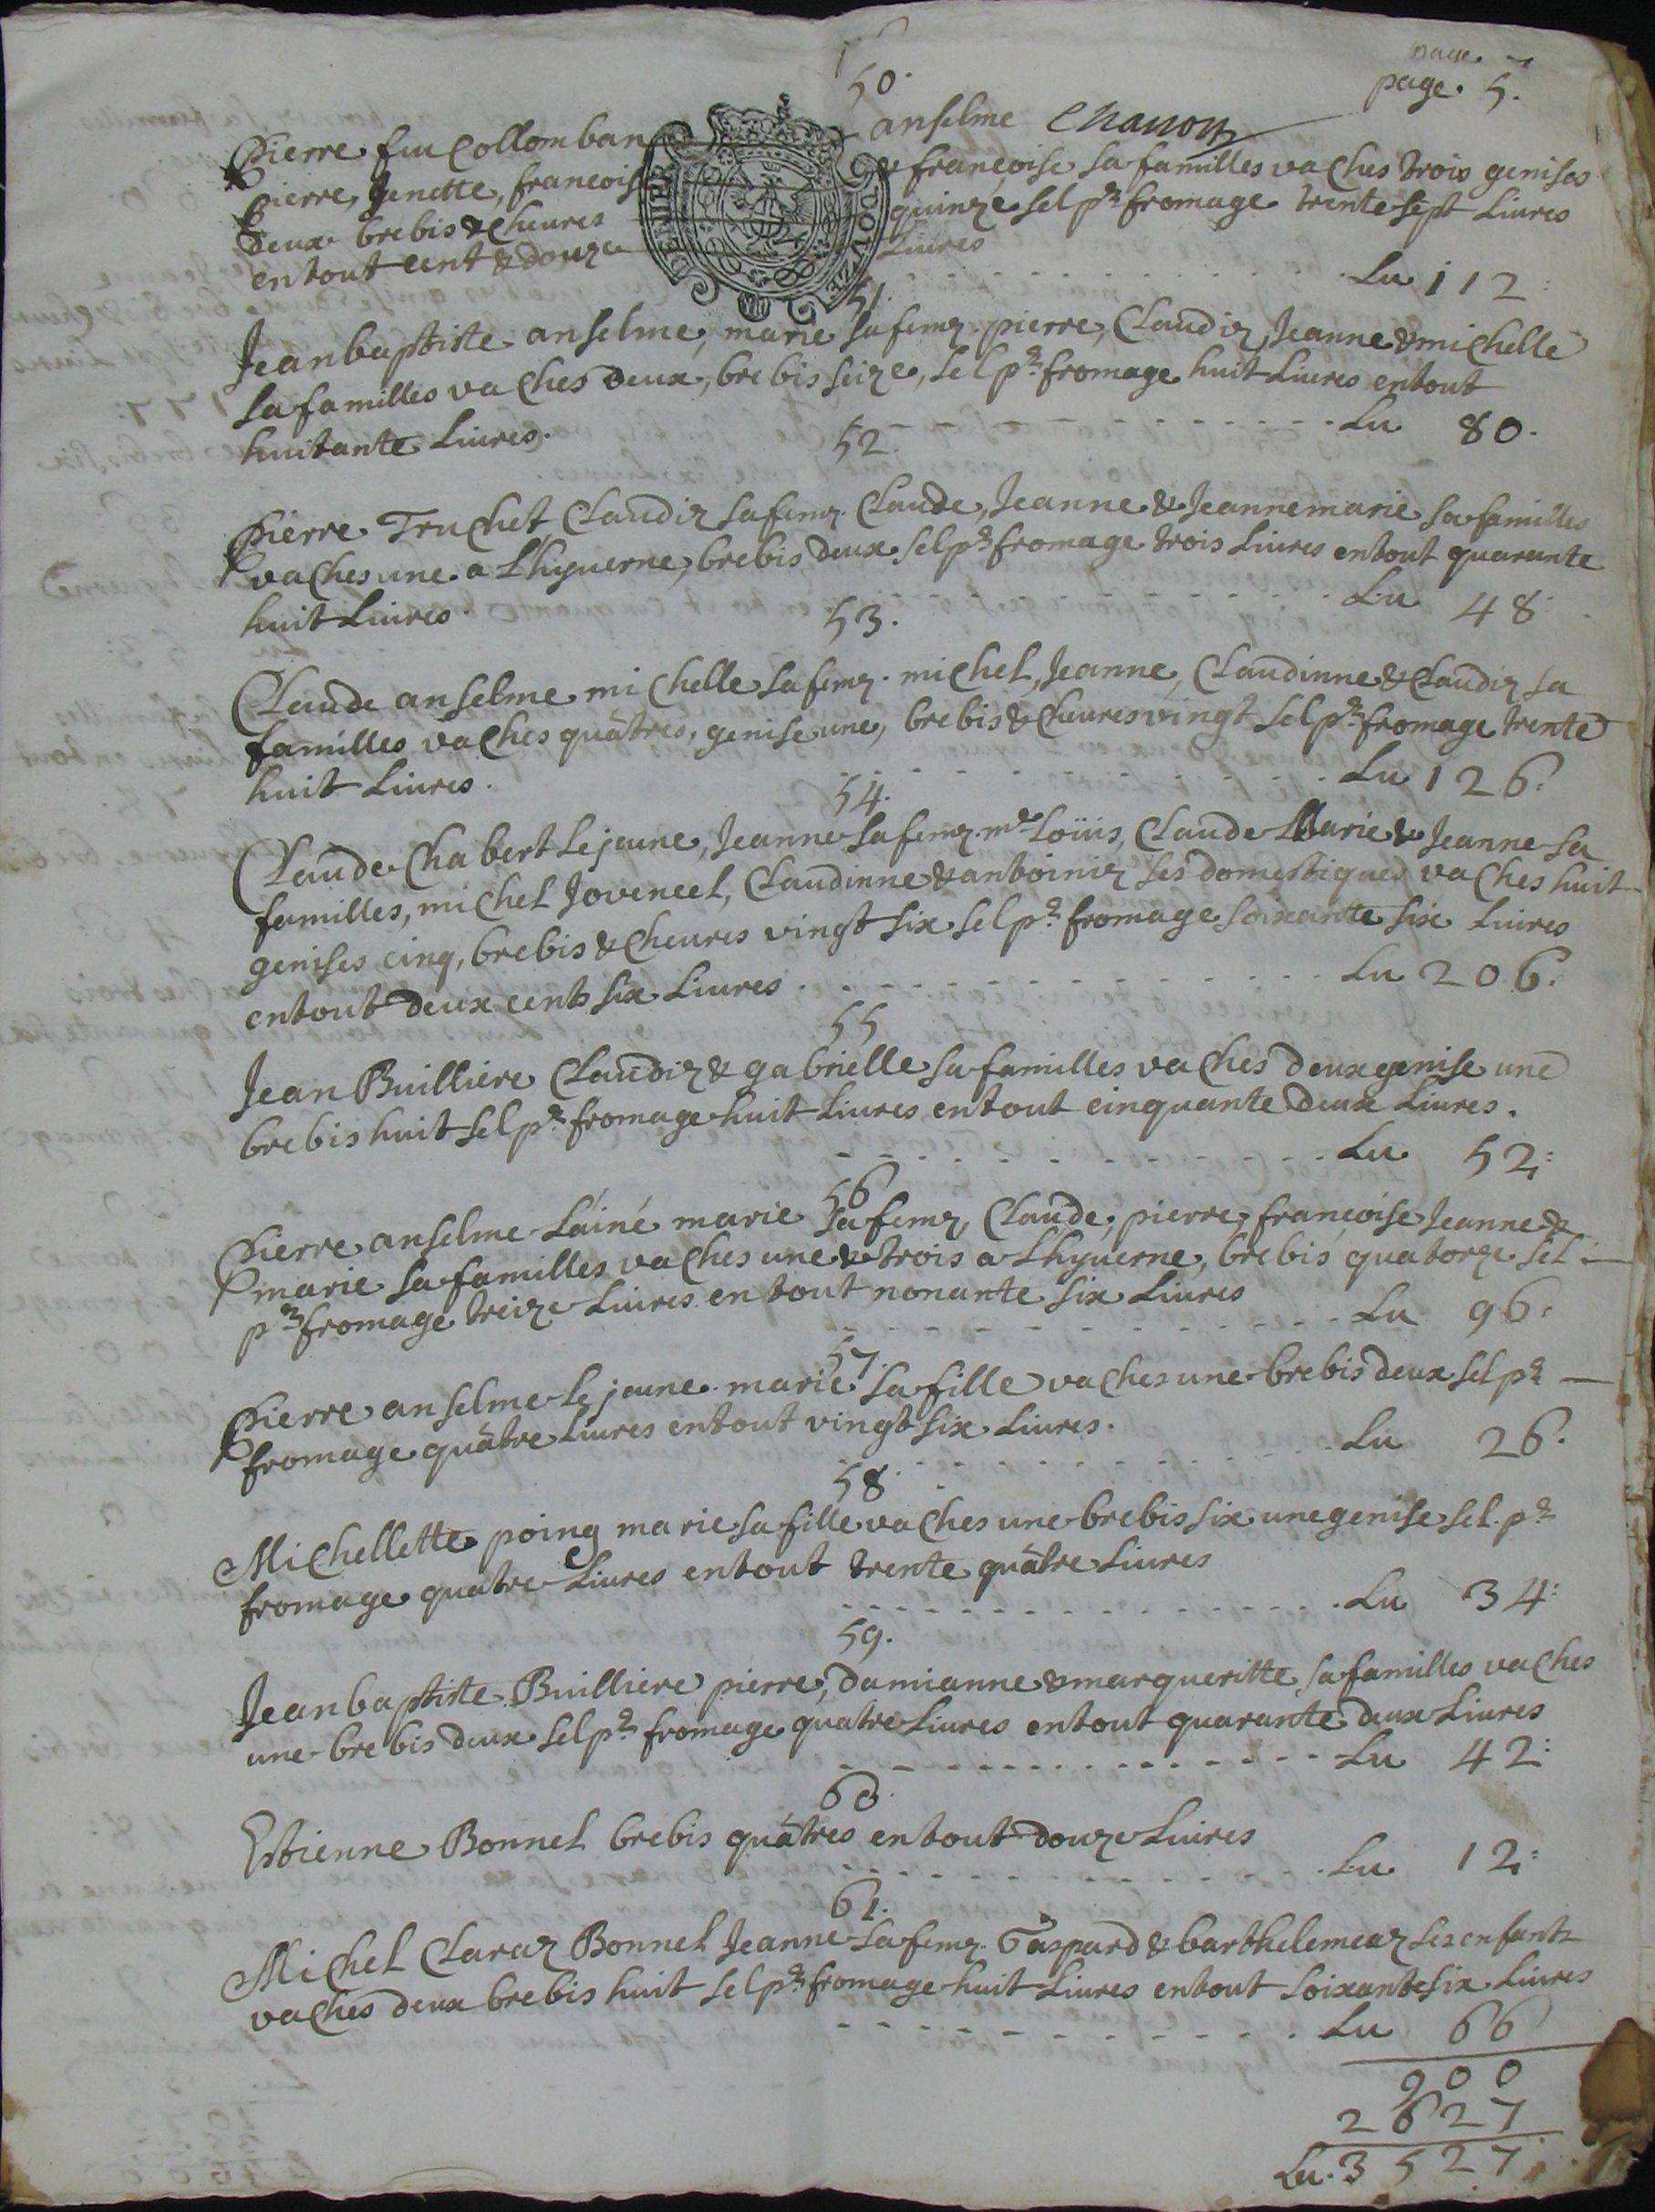 page
page. 5.
50.
Pierre feu Collomban anselme Chanoy
pierre, Jenette, francois & françoise sa familles vaches trois genises
deux brebis & cheures quinze sel pr fromage trente sept Liures
en tout cent & douze Liures
Lu 112:
51.
Jeanbaptiste anselme, marie sa feme. pierre, Claudie, Jeanne & michelle
sa familles vaches deux, brebis seize, sel pr fromage huit Liures en tout
huitante Liures. Lu 80.
52.
Pierre Truchet Claudie sa feme Claude, Jeanne & Jeannemarie sa familles
vaches une a Lhyuerne, brebis deux sel pr fromage trois Liures en tout quarante
huit Liures. Lu 48:
53.
Claude anselme michelle sa feme. michel, Jeanne, Claudinne & Claudie sa
familles vaches quâtres, genise une, brebis & cheures vingt sel pr fromage trente
huit Liures. Lu 126:
54.
Claude Chabert Le jeune, Jeanne sa feme. me Loüis, Claude Marie & Jeanne sa
familles, michel Jovencel, Claudinne & antoinie ses domestiques vaches huit
genises cinq, brebis & cheures vingt six sel pr fromage soixante six Liures
en tout deux cents six Liures. Lu 206.
55
Jean Buillière Claudie & gabrielle sa familles vaches deux genise une
brebis huit sel pr fromage huit Liures en tout cinquante deux Liures.
Lu 52:
56
Pierre anselme L'ainé marie sa feme, Claude, pierre, françoise Jeanne &
marie sa familles vaches une & trois a Lhyuerne, brebis quatorze sel
pr fromage treize Liures en tout nonante six Liures
Lu 96:
57.
Pierre anselme Le jeune marie sa fille vaches une brebis deux sel pr
fromage quâtre Liures en tout vingt six Liures.
Lu 26.
58.
Michellette poing marie sa fille vaches une brebis six une genise sel pr
fromage quatre Liures en tout trente quâtre Liures
Lu 34:
59.
Jeanbaptiste Builliere pierre, damianne & margueritte sa familles vaches
une brebis deux sel pr fromage quatre Liures en tout quarante deux Liures
Lu 42:
60.
Estienne Bonnel brebis quâtres en tout douze Liures
Lu 12:
61.
Michel Claraz Bonnel Jeanne sa feme. Gaspard & barthelemeaz ses enfants
vaches deux brebis huit sel pr fromage huit Liures en tout soixante six Liures
Lu 66
900
2627
Lu. 3527